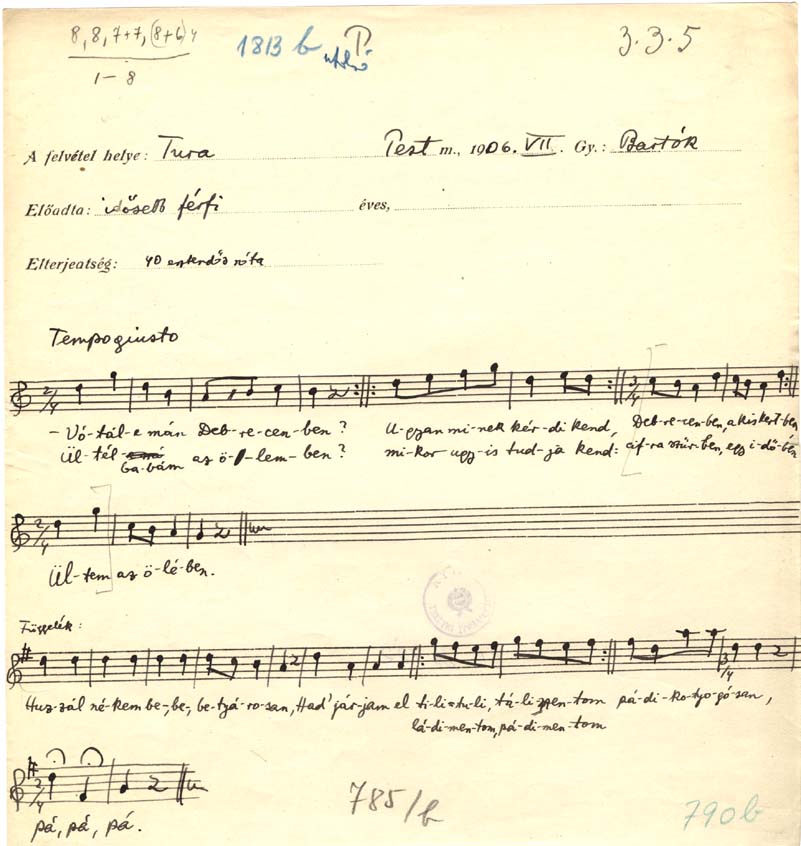 8, 8, 7+7, (8+6)
1–8
1813 b
P.
3.3.5
A felvétel helye: Tura Pest m., 1906. VII. Gy.: Bartók
Előadta: idősebb férfi éves,
Elterjedtség: 40 esztendős nóta
Tempo giusto
2/4 3/4
– Vó-tál-e mán Deb-re-cen-ben? U-gyan mi-nek kér-di kend, Deb-re-cen-ben, a kis kert-ben
Ül-tél ba-bám az ö-lem-ben? mi-kor ugy-is tud-ja kend: cif-ra szűr-ben, egy i-dő-ben
2/4
Ül-tem az ö-lé-ben.
Függelék:
3/4
Huz-zál né-kem be-, be-, be-tyá-ro-san, Had' jár-jam el ti-li-tu-li, tá-li pen-tom pá-di-ko-tyo-gó-san,
lá-di-men-tom, pá-di-men-tom
2/4
pá, pá, pá.
785/b
790b